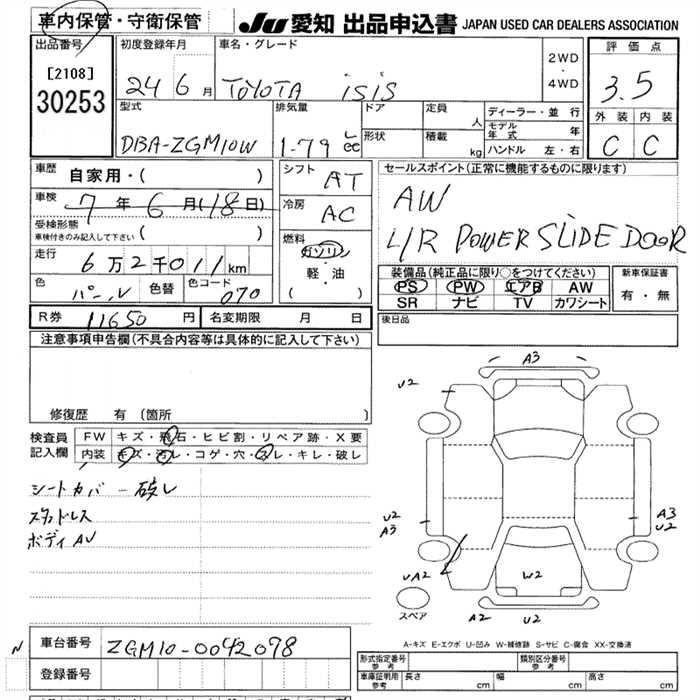 車内保管・守衛保管 JU 愛知 出品申込書 JAPAN USED CAR DEALERS ASSOCIATION
出品番号 初度登録年月 車名・グレード 評価点
[2108] 24 6月 TOYOTA isis 2WD・4WD 3.5
30253 型式 排気量 ドア 定員 人 ディーラー・並行 外装 内装
DBA-ZGM10W 1-79 L cc 形状 積載 kg モデル年式 年 C C
ハンドル 左・右
車歴 自家用・( ) シフト AT セールスポイント(正常に機能するものに限ります)
車検 7年6月(18日) 冷房 AC AW
受検形態 L/R POWER SLIDE DOOR
車検付きのみ記入して下さい ( ) 燃料 ガソリン
走行 6万2千011km 軽・油 装備品(純正品に限り○をつけてください) 新車保証書
色 パール 色替 色コード 070 ( ) PS PW エアB AW 有・無
SR ナビ TV カワシート
R券 11650円 名変期限 月 日 後日品
注意事項申告欄(不具合内容等は具体的に記入して下さい)
A3
U2
修復歴 有 (箇所 )
検査員 FW キズ・飛石・ヒビ割・リペア跡・X要
記入欄 内装 キズ・汚レ・コゲ・穴・スレ・キレ・破レ
シートカバー破レ
スタッドレス U2 A3
ボディAU A3 U2
UA2 W2
スペア A2 U2
A-キズ E-エクボ U-凹み W-補修跡 S-サビ C-腐食 XX-交換済
N 車台番号 ZGM10-0042098
登録番号 形式指定番号 参考 類別区分番号 参考
車庫証明用 参考 長さ cm 幅 cm 高さ cm